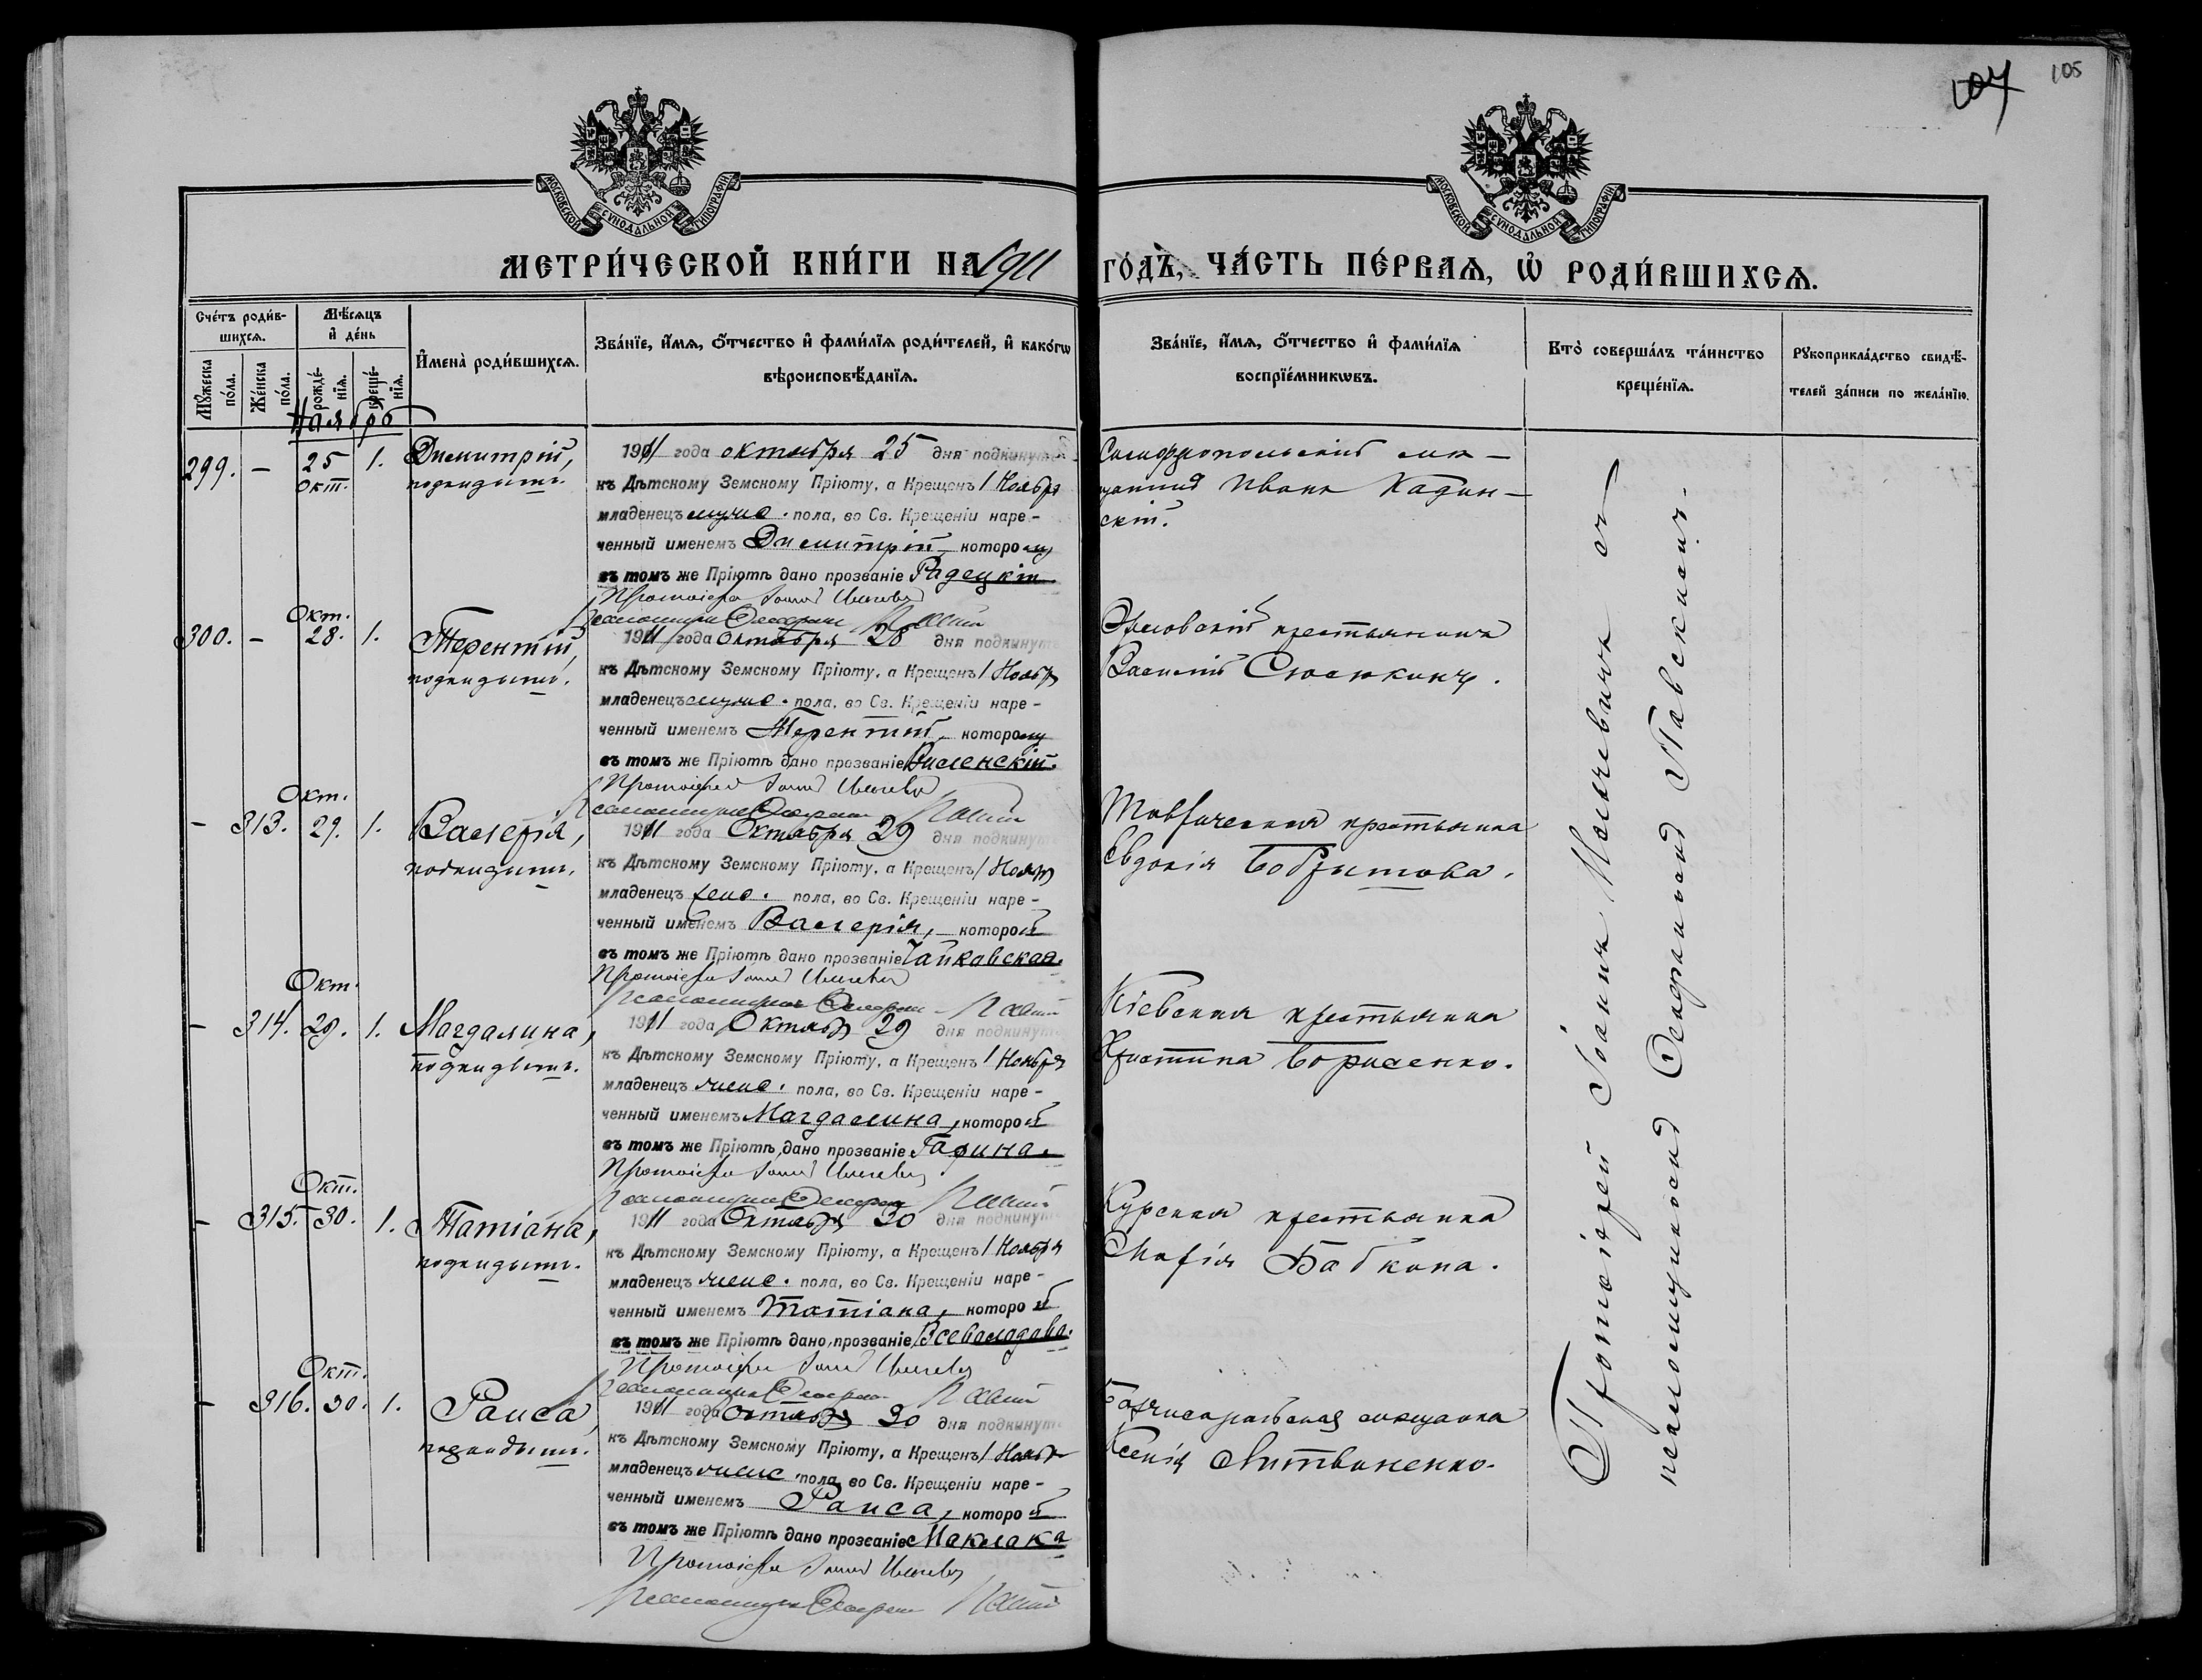 107
105
МОСКОВСКОЙ СѴНОДАЛЬНОЙ ТИПОГРАФІИ
МОСКОВСКОЙ СѴНОДАЛЬНОЙ ТИПОГРАФІИ
МЕТРИ́ЧЕСКОЙ КНИ́ГИ НА 1911 ГО́ДЪ, ЧА́СТЬ ПЕ́РВАѦ, Ѡ҆ РОДИ́ВШИХСѦ.
Сче́тъ роди́в-
шихсѧ.
Мꙋ́жеска по́ла.
Же́нска по́ла.
Мѣ́сѧцъ
и҆ де́нь
рожде́-
нїѧ.
креще́-
нїѧ.
И҆мена̀ роди́вшихсѧ.
Зва́нїе, и҆́мѧ, ѻ҆́тчество и҆ фами́лїѧ роди́телей, и҆ како́гѡ
вѣроисповѣ́данїѧ.
Зва́нїе, и҆́мѧ, ѻ҆́тчество и҆ фами́лїѧ
воспрїе́мникѡвъ.
Кто̀ соверша́лъ та́инство
креще́нїѧ.
Рꙋкоприкла́дство свидѣ́-
телей за́писи по жела́нїю.
Ноябрь
299. – 25 окт. 1. Димитрій,
подкидышъ.
1911 года октября 25 дня подкинутъ
къ Дѣтскому Земскому Пріюту, а Крещенъ 1 Ноября
младенецъ муж. пола, во Св. Крещеніи наре-
ченный именемъ Димитрій, которому
въ томъ же Пріютѣ дано прозваніе Радецкій.
Протоіерей Іоаннъ
Псаломщикъ
Симферопольскій мѣ-
щанинъ Иванъ Кадин-
скій.
300. – Окт. 28. 1. Терентій,
подкидышъ.
1911 года Октября 28 дня подкинутъ
къ Дѣтскому Земскому Пріюту, а Крещенъ 1 Ноября
младенецъ муж. пола, во Св. Крещеніи наре-
ченный именемъ Терентій, которому
въ томъ же Пріютѣ дано прозваніе Виленскій.
Протоіерей Іоаннъ
Псаломщикъ
Орловскій крестьянинъ
Василій Сюсюкинъ.
– 313. Окт. 29. 1. Валерія,
подкидышъ.
1911 года Октября 29 дня подкинутъ
къ Дѣтскому Земскому Пріюту, а Крещенъ 1 Ноября
младенецъ жен. пола, во Св. Крещеніи наре-
ченный именемъ Валерія, которой
въ томъ же Пріютѣ дано прозваніе Чайковская.
Протоіерей Іоаннъ
Псаломщикъ
Таврическая крестьянка
Евдокія Бобрышова.
– 314. Окт. 29. 1. Магдалина,
подкидышъ.
1911 года Октября 29 дня подкинутъ
къ Дѣтскому Земскому Пріюту, а Крещенъ 1 Ноября
младенецъ жен. пола, во Св. Крещеніи наре-
ченный именемъ Магдалина, которой
въ томъ же Пріютѣ дано прозваніе Гарина.
Протоіерей Іоаннъ
Псаломщикъ
Кіевская крестьянка
Христина Борисенко.
– 315. Окт. 30. 1. Татіана,
подкидышъ.
1911 года Октября 30 дня подкинутъ
къ Дѣтскому Земскому Пріюту, а Крещенъ 1 Ноября
младенецъ жен. пола, во Св. Крещеніи наре-
ченный именемъ Татіана, которой
въ томъ же Пріютѣ дано прозваніе Всеволодова.
Протоіерей Іоаннъ
Псаломщикъ
Курская крестьянка
Марія Бабкина.
– 316. Окт. 30. 1. Раиса,
подкидышъ.
1911 года Октября 30 дня подкинутъ
къ Дѣтскому Земскому Пріюту, а Крещенъ 1 Ноября
младенецъ жен. пола, во Св. Крещеніи наре-
ченный именемъ Раиса, которой
въ томъ же Пріютѣ дано прозваніе Маклака
Протоіерей Іоаннъ
Псаломщикъ
Бахчисарайская мѣщанка
Ксенія Литвиненко.
Протоіерей Іоаннъ съ
псаломщикомъ Павскимъ.